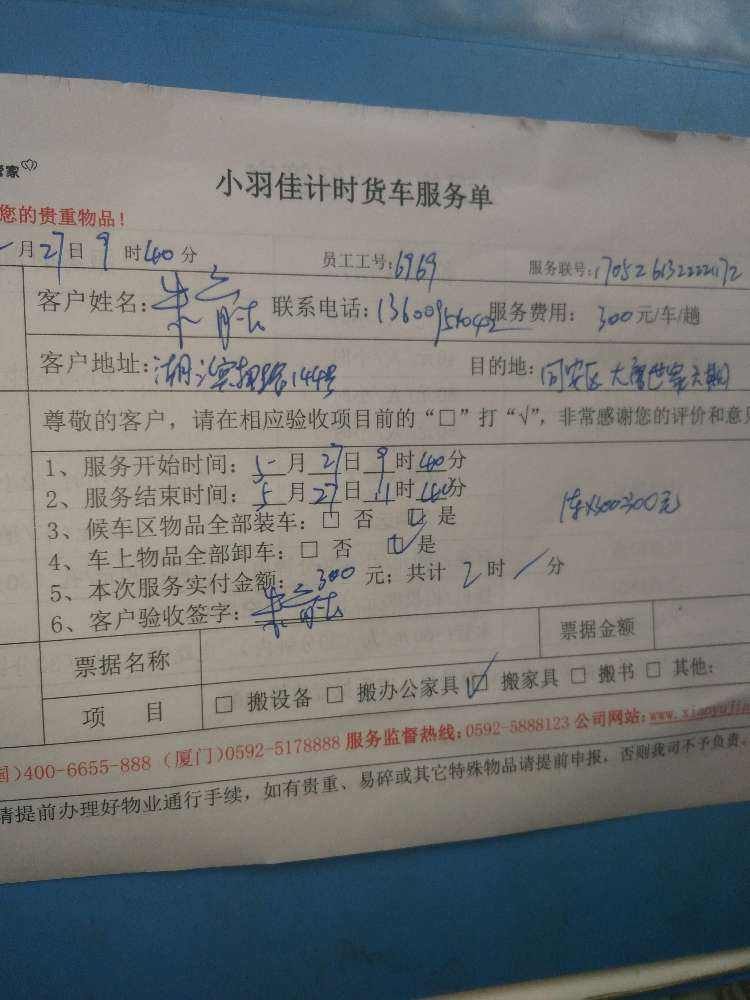 管家
小羽佳计时货车服务单
您的贵重物品！
月27日9时40分 员工工号：6969 服务联号：170526132222172
客户姓名： 联系电话：13600951042 服务费用：300元/车/趟
客户地址：湖滨 144号 目的地：同安区大唐世家
尊敬的客户，请在相应验收项目前的“□”打“√”，非常感谢您的评价和意见
1、服务开始时间：5月27日9时40分
2、服务结束时间：5月27日11时40分
3、候车区物品全部装车：□ 否 ☑ 是
1车X300=300元
4、车上物品全部卸车：□ 否 ☑ 是
5、本次服务实付金额：300元；共计2时/分
6、客户验收签字：
票据名称 票据金额
项 目 □ 搬设备 □ 搬办公家具 ☑ 搬家具 □ 搬书 □ 其他：
国)400-6655-888（厦门)0592-5178888 服务监督热线：0592-5888123 公司网站：www.xiaoyujia
请提前办理好物业通行手续，如有贵重、易碎或其它特殊物品请提前申报，否则我司不予负责。